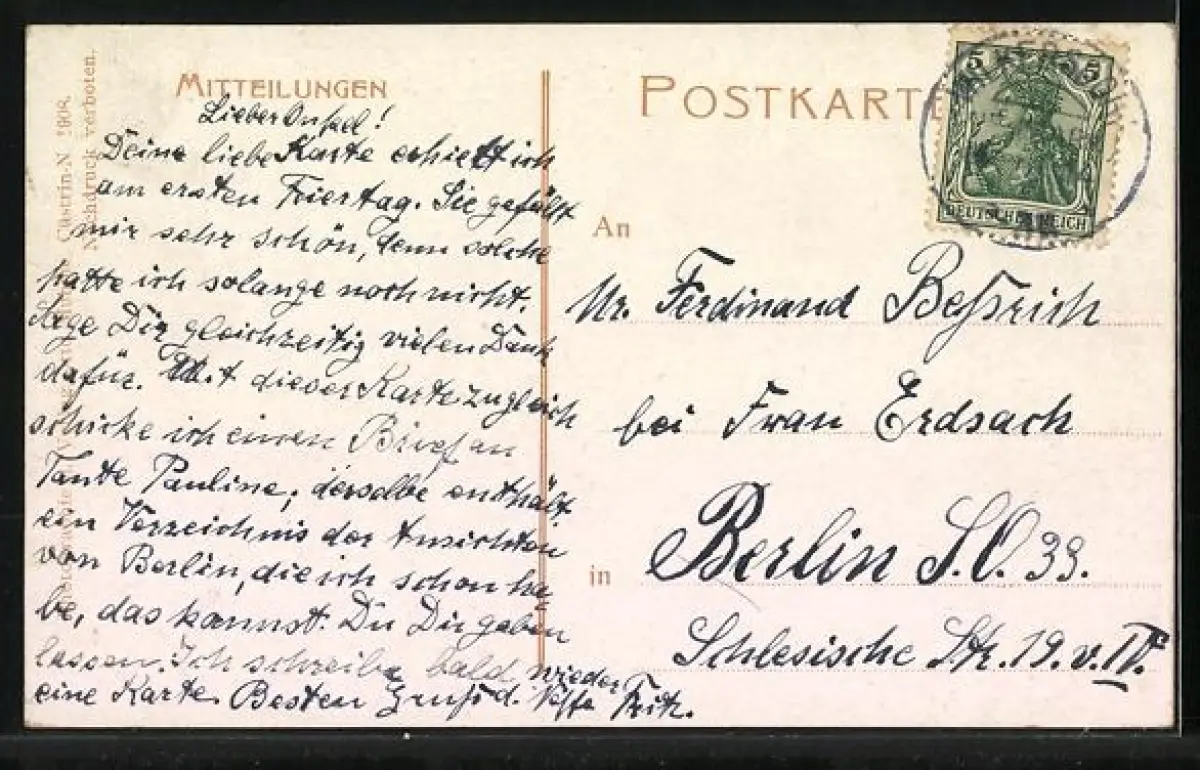 MITTEILUNGEN
Lieber Onkel!
Deine liebe Karte erhielt ich
am ersten Feiertag. Sie gefällt
mir sehr schön, denn solche
hatte ich solange noch nicht.
Sage Dir gleichzeitig vielen Dank
dafür. Mit dieser Karte zugleich
schicke ich einen Brief an
Tante Pauline, derselbe enthält
ein Verzeichnis der Ansichten
von Berlin, die ich schon ha-
be, das kannst Du Dir geben
lassen. Ich schreibe bald wieder
eine Karte. Besten Gruß d. Neffe Fritz.
Cüstrin-N 1908.
Nachdruck verboten.
POSTKARTE
5 5
DEUTSCHES REICH
An
Hr. Ferdinand
bei Frau Erdsach
in Berlin S.O. 33.
Schlesische Str. 19. v. IV.